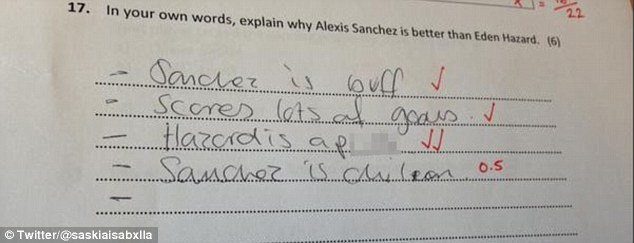 22
17. In your own words, explain why Alexis Sanchez is better than Eden Hazard. (6)
- Sanchez is buff ✓
- Scores lots of goals. ✓
- Hazard is a p ✓✓
- Sanchez is chilean 0.5
-
© Twitter/@saskiaisabxlla